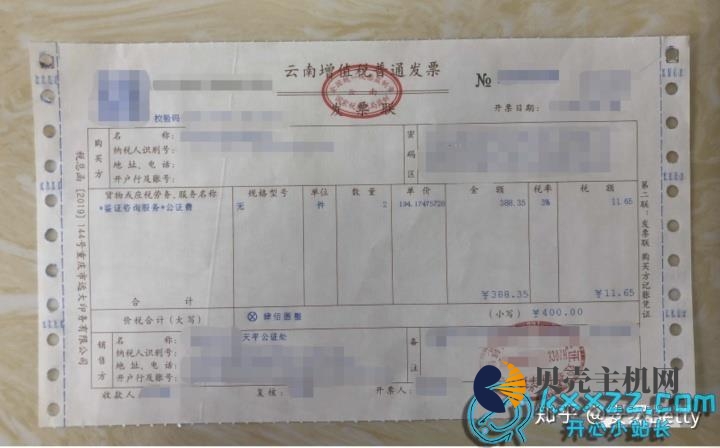 云南增值税普通发票
发票联
云南
№
校验码
开票日期:
购买方
名称:
纳税人识别号:
地址、电话:
开户行及账号:
密码区
货物或应税劳务、服务名称 规格型号 单位 数量 单价 金额 税率 税额
*鉴证咨询服务*公证费 无 件 2 194.17475728 388.35 3% 11.65
合计 ¥388.35 ¥11.65
价税合计(大写) ⊗肆佰圆整 (小写) ¥400.00
销售方
名称: 天平公证处
纳税人识别号:
地址、电话:
开户行及账号:
备注
收款人: 复核: 开票人:
税总函〔2019〕144号重庆市远大印务有限公司
第二联:发票联 购买方记账凭证
贝壳主机网
kxxzz.com
开心小站长
知乎